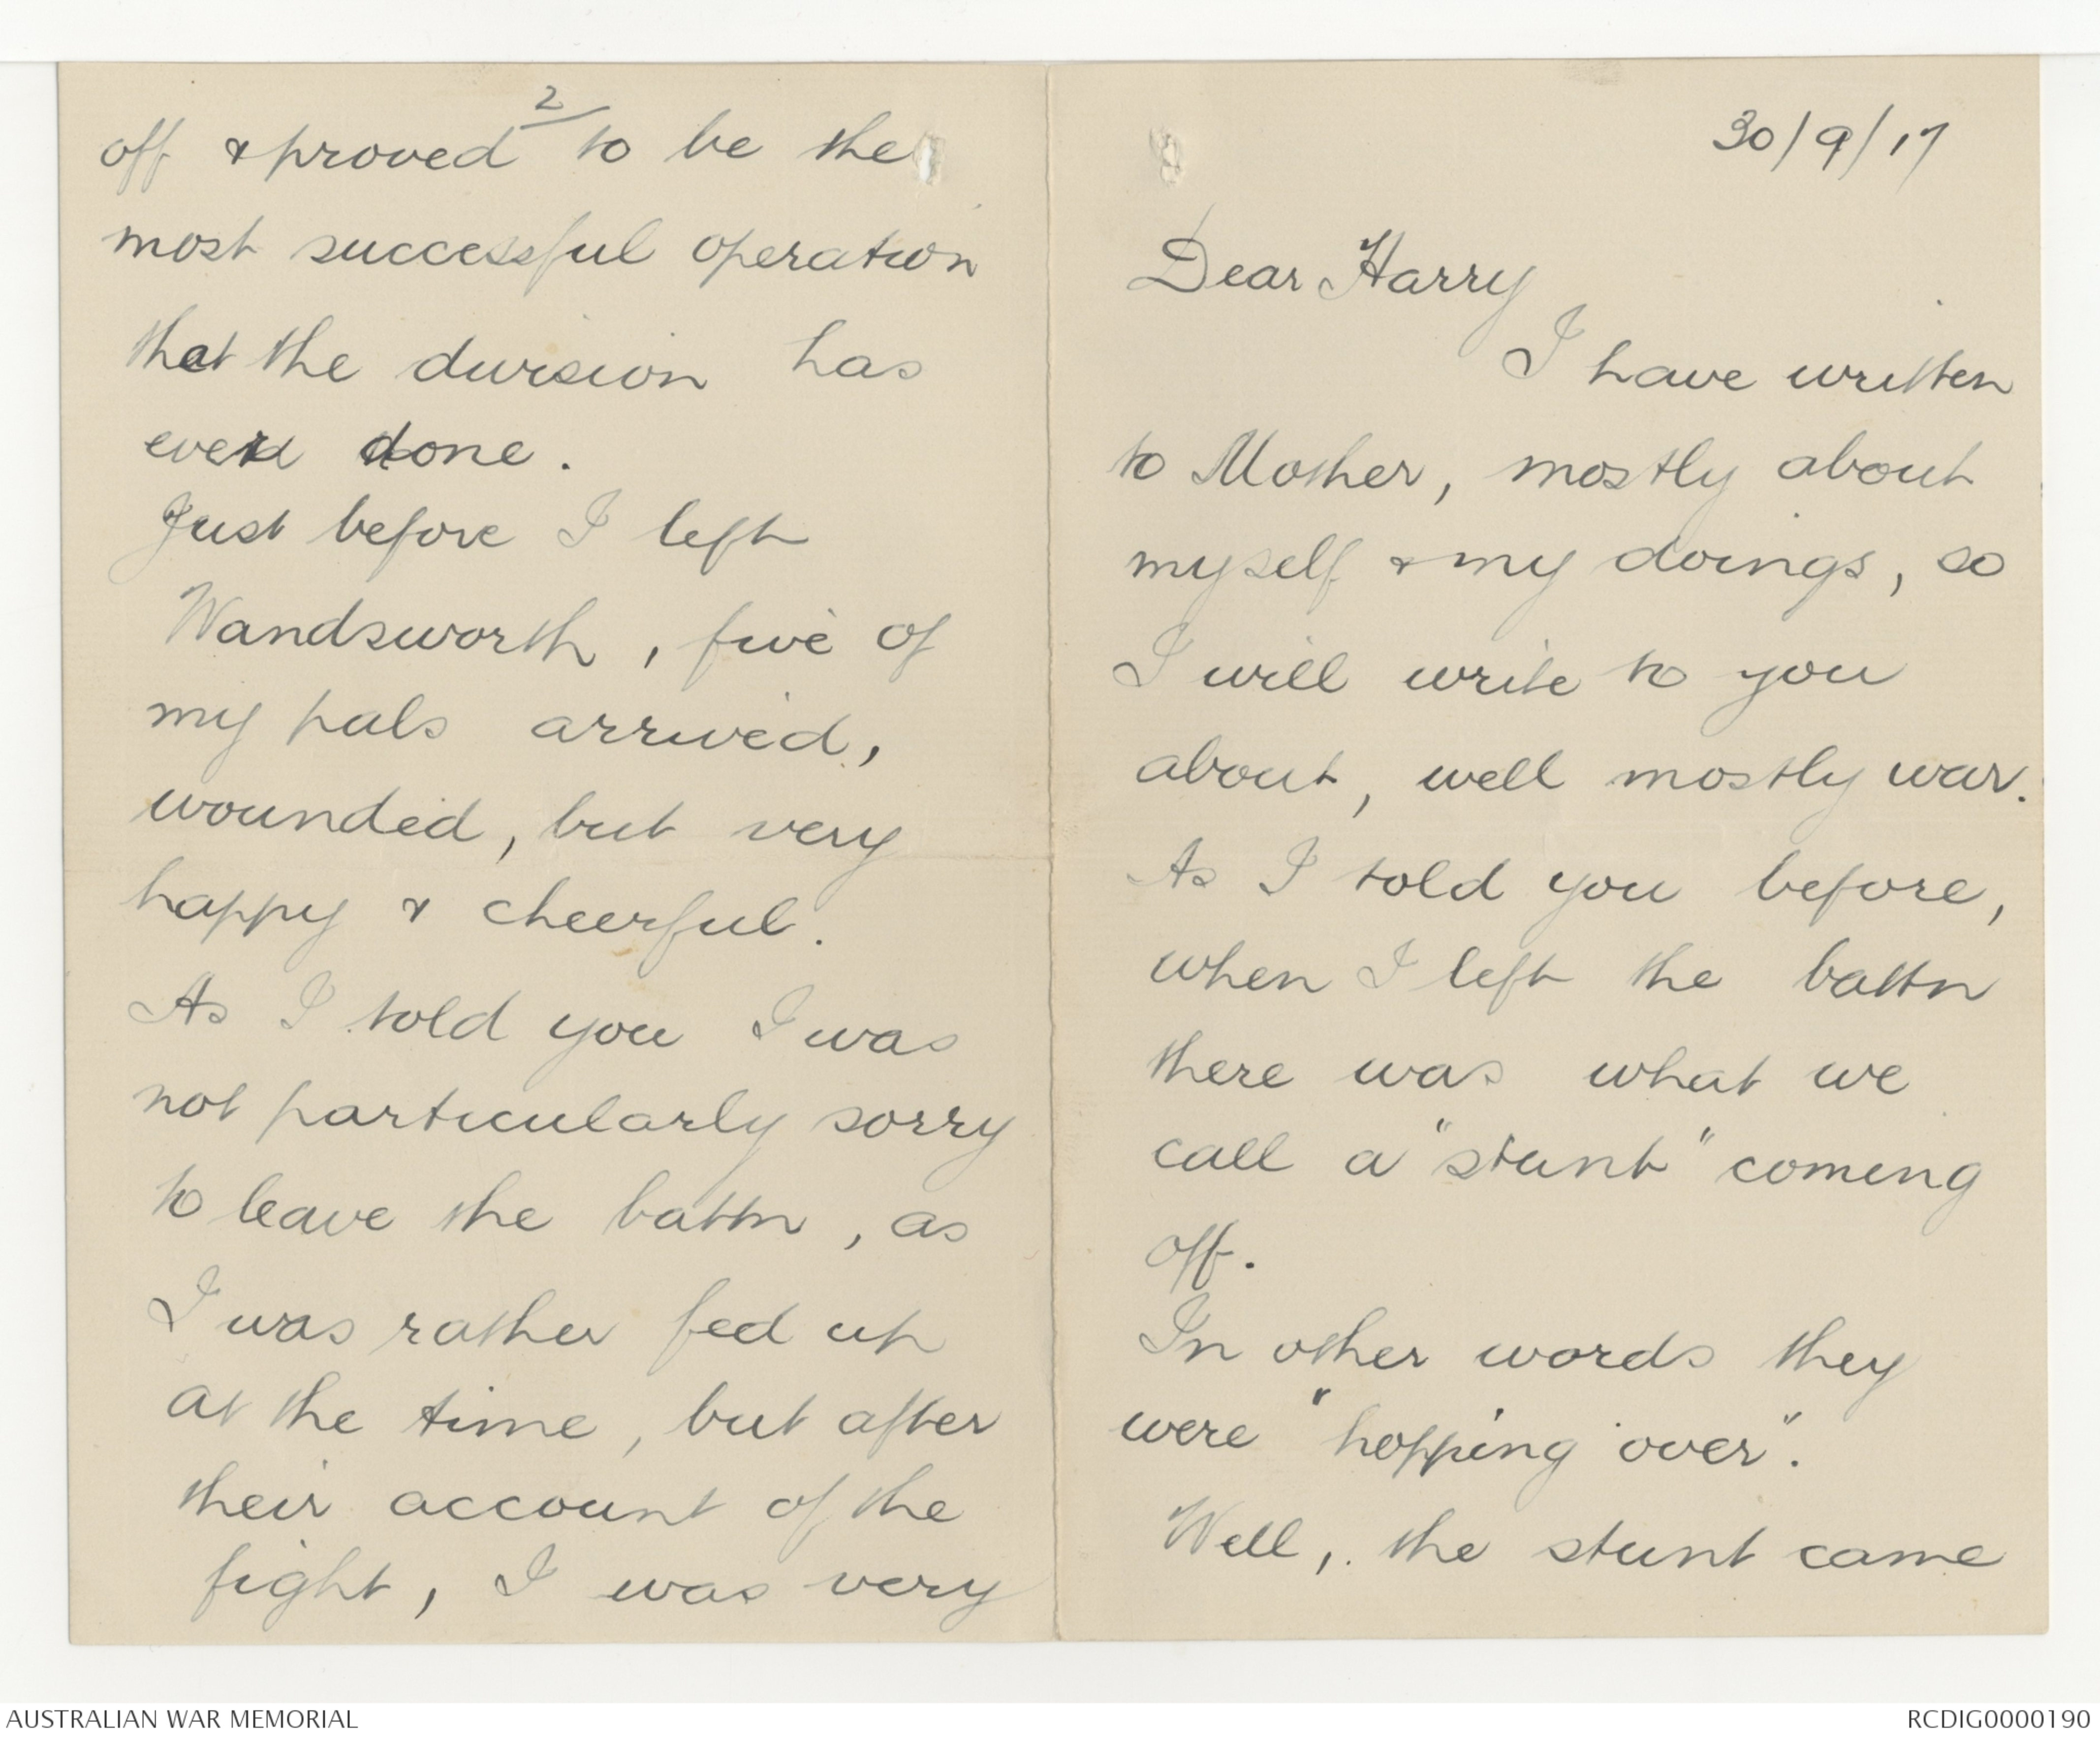 30/9/17
Dear Harry
I have written
to Mother, mostly about
myself & my doings, so
I will write to you
about, well mostly war.
As I told you before,
when I left the battn
there was what we
call a "stunt" coming
off.
In other words they
were "hopping over".
Well, the stunt came
2
off & proved to be the
most successful operation
that the division has
ever done.
Just before I left
Wandsworth, five of
my pals arrived,
wounded, but very
happy & cheerful.
As I told you I was
not particularly sorry
to leave the battn, as
I was rather fed up
at the time, but after
their account of the
fight, I was very
AUSTRALIAN WAR MEMORIAL
RCDIG0000190